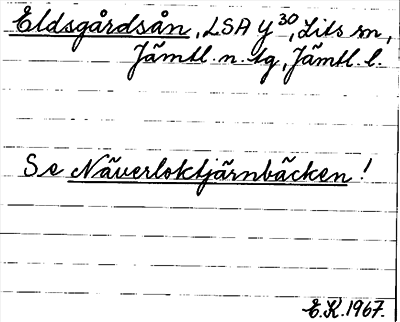 Eldsgårdsån, LSA Y30, Lits sn,
Jämtl. n. tg, Jämtl. l.
Se Näverloktjärnbäcken!
E.K. 1967.